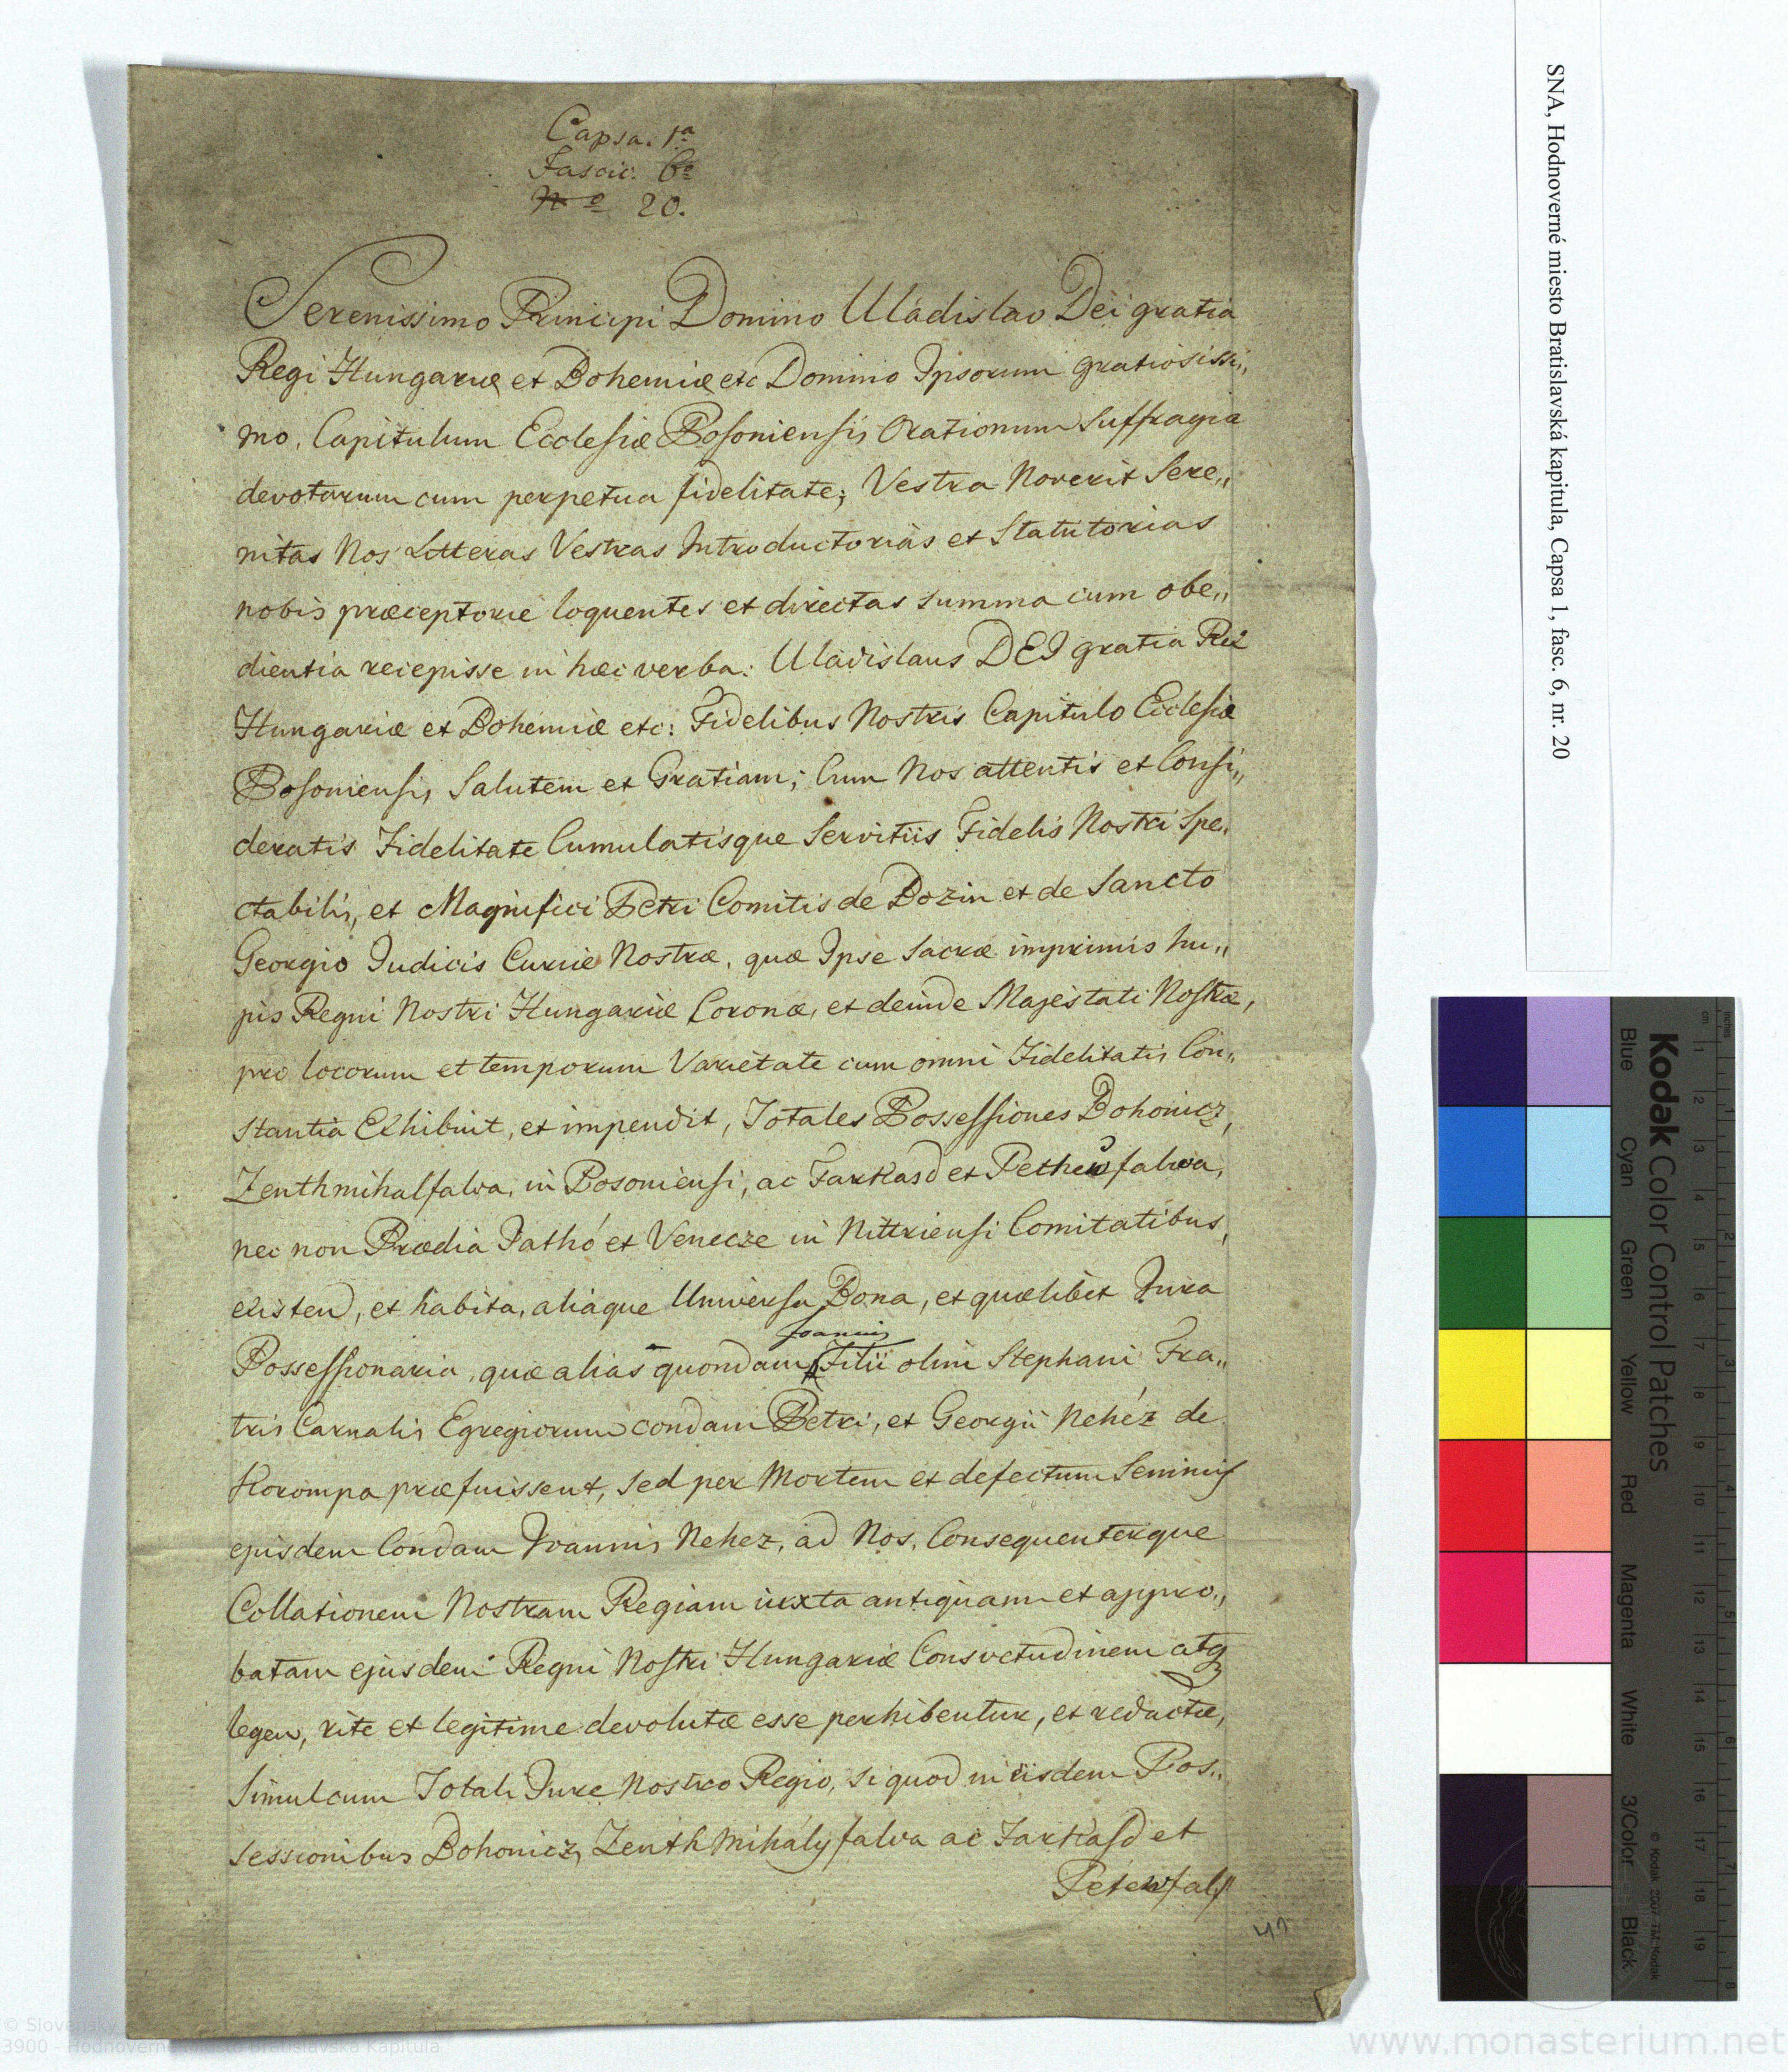 Capsa. 1ª
Fascic. 6º
Nº 20.
Serenissimo Principi Domino Uladislao Dei gratia
Regi Hungariæ et Bohemiæ etc Domino Ipsorum gratiosissi„
mo. Capitulum Ecclesiæ Posoniensis Orationum Suffragia
devotarum cum perpetua fidelitate; Vestra Noverit Sere„
nitas Nos Litteras Vestras Introductorias et Statutorias
nobis præceptorie loquentes et directas summa cum obe„
dientia recepisse in hæc verba: Uladislaus DEI gratia Rex
Hungariæ et Bohemiæ etc: Fidelibus Nostris Capitulo Ecclesiæ
Posoniensis, Salutem et Gratiam; Cum Nos attentis et Consi„
deratis Fidelitate Cumulatisque Servitiis Fidelis Nostri Spe„
ctabilis, et Magnifici Petri Comitis de Bozin et de Sancto
Georgio Judicis Curiæ Nostræ, quæ Ipse Sacræ imprimis hu„
jus Regni Nostri Hungariæ Coronæ, et deinde Majestati Nostræ,
pro locorum et temporum Varietate cum omni Fidelitatis Con„
stantia Exhibuit, et impendit, Totales Possessiones Bohonicz,
Zenthmihalfalva, in Posoniensi, ac Farkasd et Pethewfalwa,
nec non Prædia Jathó et Venecze in Nittriensi Comitatibus,
existend, et habita, aliaque Universa Bona, et quælibet Jura
Joannis
Possessionaria, quæ alias quondam Filii olim Stephani Fra„
tris Carnalis Egregiorum condam Petri, et Georgii Nehéz de
Korompa præfuissent, sed per Mortem et defectum Seminis
ejusdem Condam Joannis Nehez, ad Nos, Consequenterque
Collationem Nostram Regiam iuxta antiquam et appro„
batam ejusdem Regni Nostri Hungariæ Consvetudinem atq
legem, rite et legitime devolutæ esse perhibentur, et redactæ,
Simulcum Totali Jure Nostro Regio, si quod in iisdem Pos„
sessionibus Bohonicz, Zenth Mihályfalva ac Farkasd et
Petewfalv
41
SNA, Hodnoverné miesto Bratislavská kapitula, Capsa 1, fasc. 6, nr. 20
Kodak Color Control Patches
Blue Cyan Green Yellow Red Magenta White 3/Color Black
© Kodak 2007 TM: Kodak
inches 1 2 3 4 5 6 7 8
cm 1 2 3 4 5 6 7 8 9 10 11 12 13 14 15 16 17 18 19
3900 - Hodnoverné miesto Bratislavská kapitula
www.monasterium.net